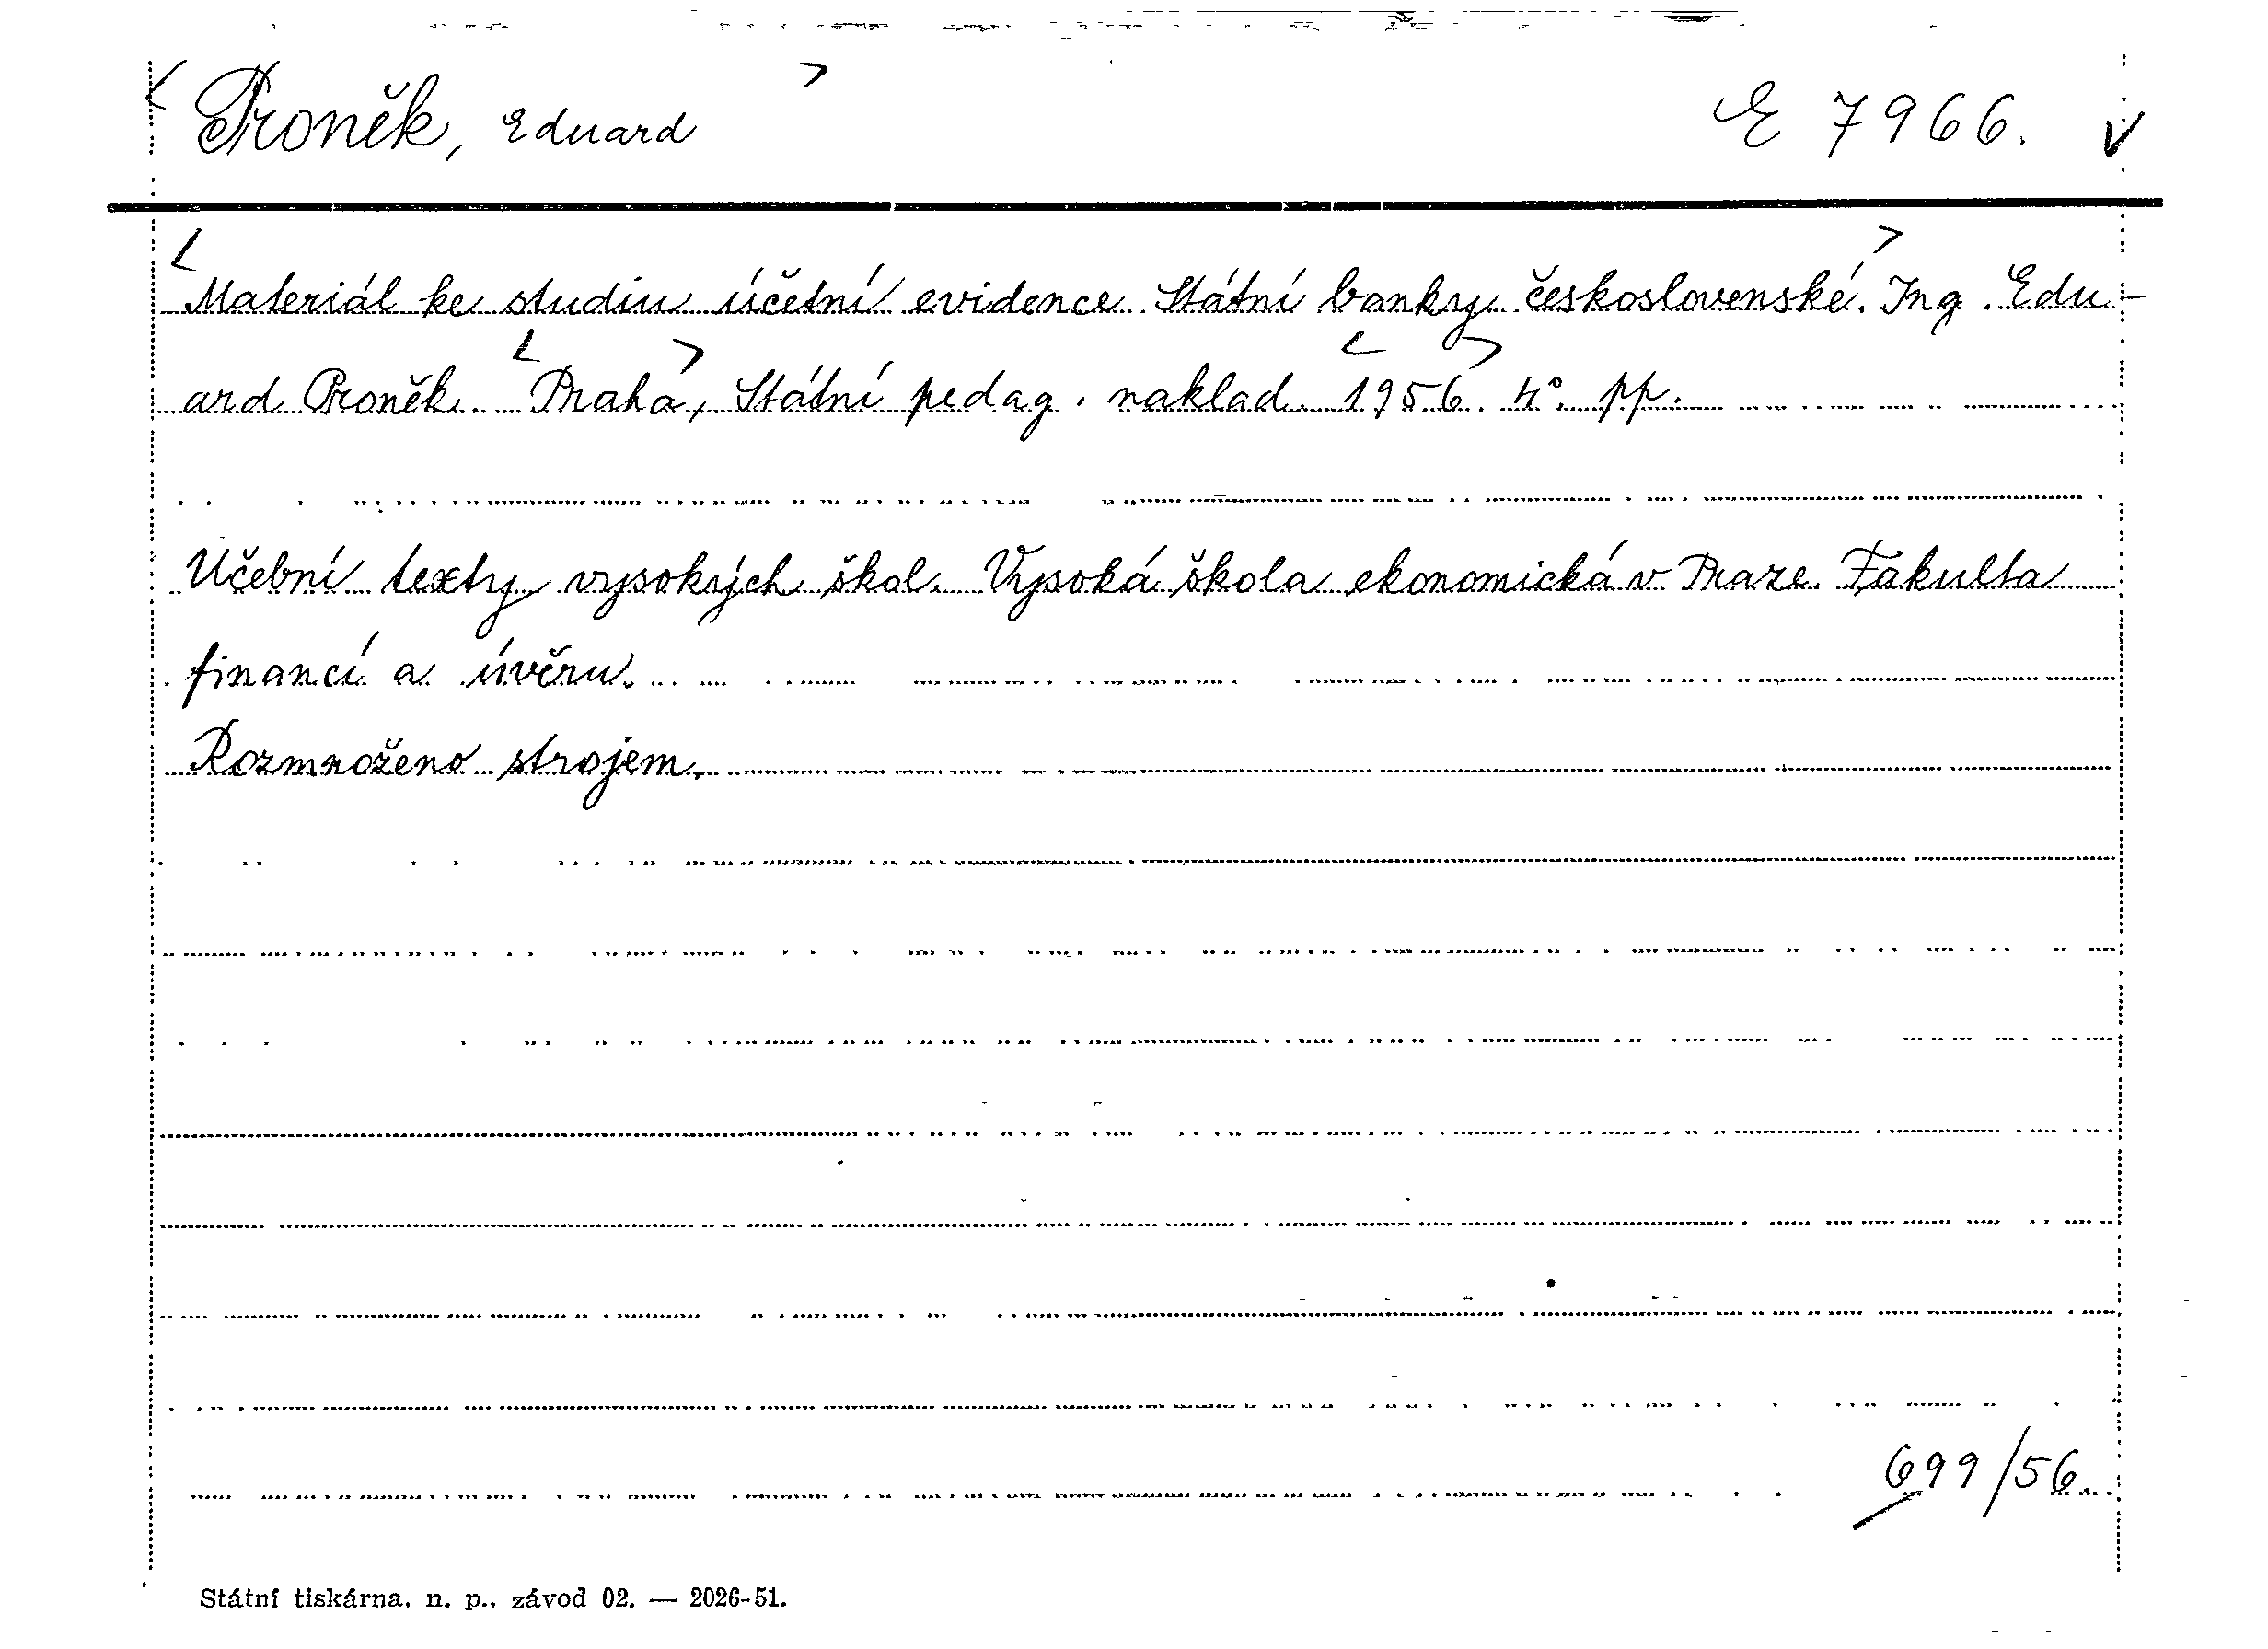 Proněk, Eduard E 7966.
Materiál ke studiu účetní evidence Státní banky československé. Ing. Edu-
ard Proněk. Praha, Státní pedag. naklad. 1956. 4°. pp.
Učební texty vysokých škol. Vysoká škola ekonomická v Praze. Fakulta
financí a úvěru.
Rozmnoženo strojem.
699/56.
Státní tiskárna, n. p., závod 02. — 2026-51.